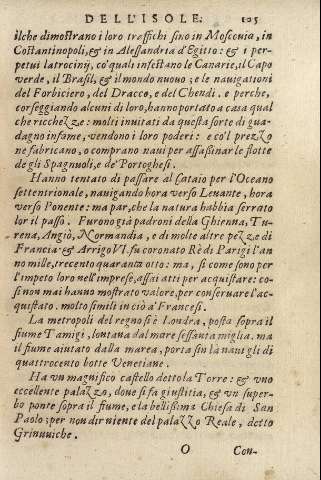 DELL'ISOLE. 105
ilche dimostrano i loro traffichi sino in Moscouia, in
Costantinopoli, & in Alessandria d'Egitto: & i per-
petui latrocinij, co' quali infestano le Canarie, il Capo
verde, il Brasil, & il mondo nuouo; e le nauigationi
del Forbiciero, del Dracco, e del Chendi. e perche,
corseggiando alcuni di loro, hanno portato a casa qual
che ricchezze: molti inuitati da questa sorte di gua-
dagno infame, vendono i loro poderi: e co'l prezzo
ne fabricano, o comprano naui per assassinar le flotte
de gli Spagnuoli, e de' Portoghesi.
Hanno tentato di passare al Cataio per l'Oceano
settentrionale, nauigando hora verso Leuante, hora
verso Ponente: ma par, che la natura habbia serrato
lor il passo. Furono già padroni della Ghienna, Tu-
rena, Angiò, Normandia, e di molte altre pezze di
Francia & Arrigo VI. fu coronato Rè di Parigi l'an
no mille, trecento quaranta otto: ma, si come sono per
l'impeto loro nell'imprese, assai atti per acquistare: co-
sì non mai hanno mostrato valore, per conseruare l'ac-
quistato. molto simili in ciò a' Francesi.
La metropoli del regno si è Londra, posta sopra il
fiume Tamigi, lontana dal mare sessanta miglia. ma
il fiume aiutato dalla marea, porta sin là naui gli di
quattrocento botte Venetiane.
Ha vn magnifico castello detto la Torre: & vno
eccellente palazzo, doue si fa giustitia, & vn super-
bo ponte sopra il fiume, e la bellissima Chiesa di San
Paolo; per non dir niente del palazzo Reale, detto
Grinuuiche.
O Con-